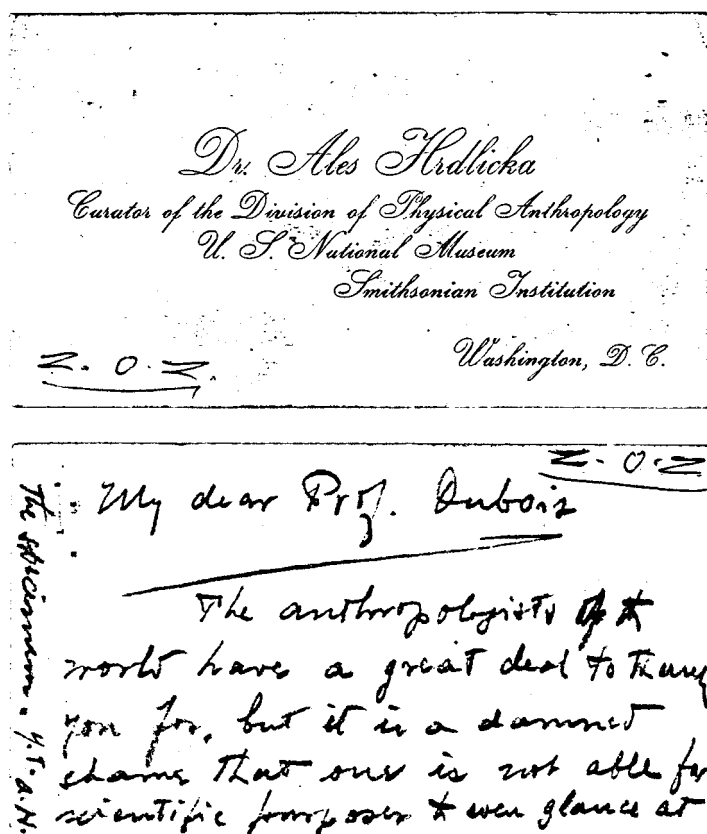 Dr. Ales Hrdlicka
Curator of the Division of Physical Anthropology
U. S. National Museum
Smithsonian Institution
Washington, D. C.
Z. O. Z.
Z. O. Z
My dear Prof. Dubois
The anthropologists of the
world have a great deal to thank
you for, but it is a damned
shame that one is not able for
scientific purposes to even glance at
the specimen. Y.T. A.H.